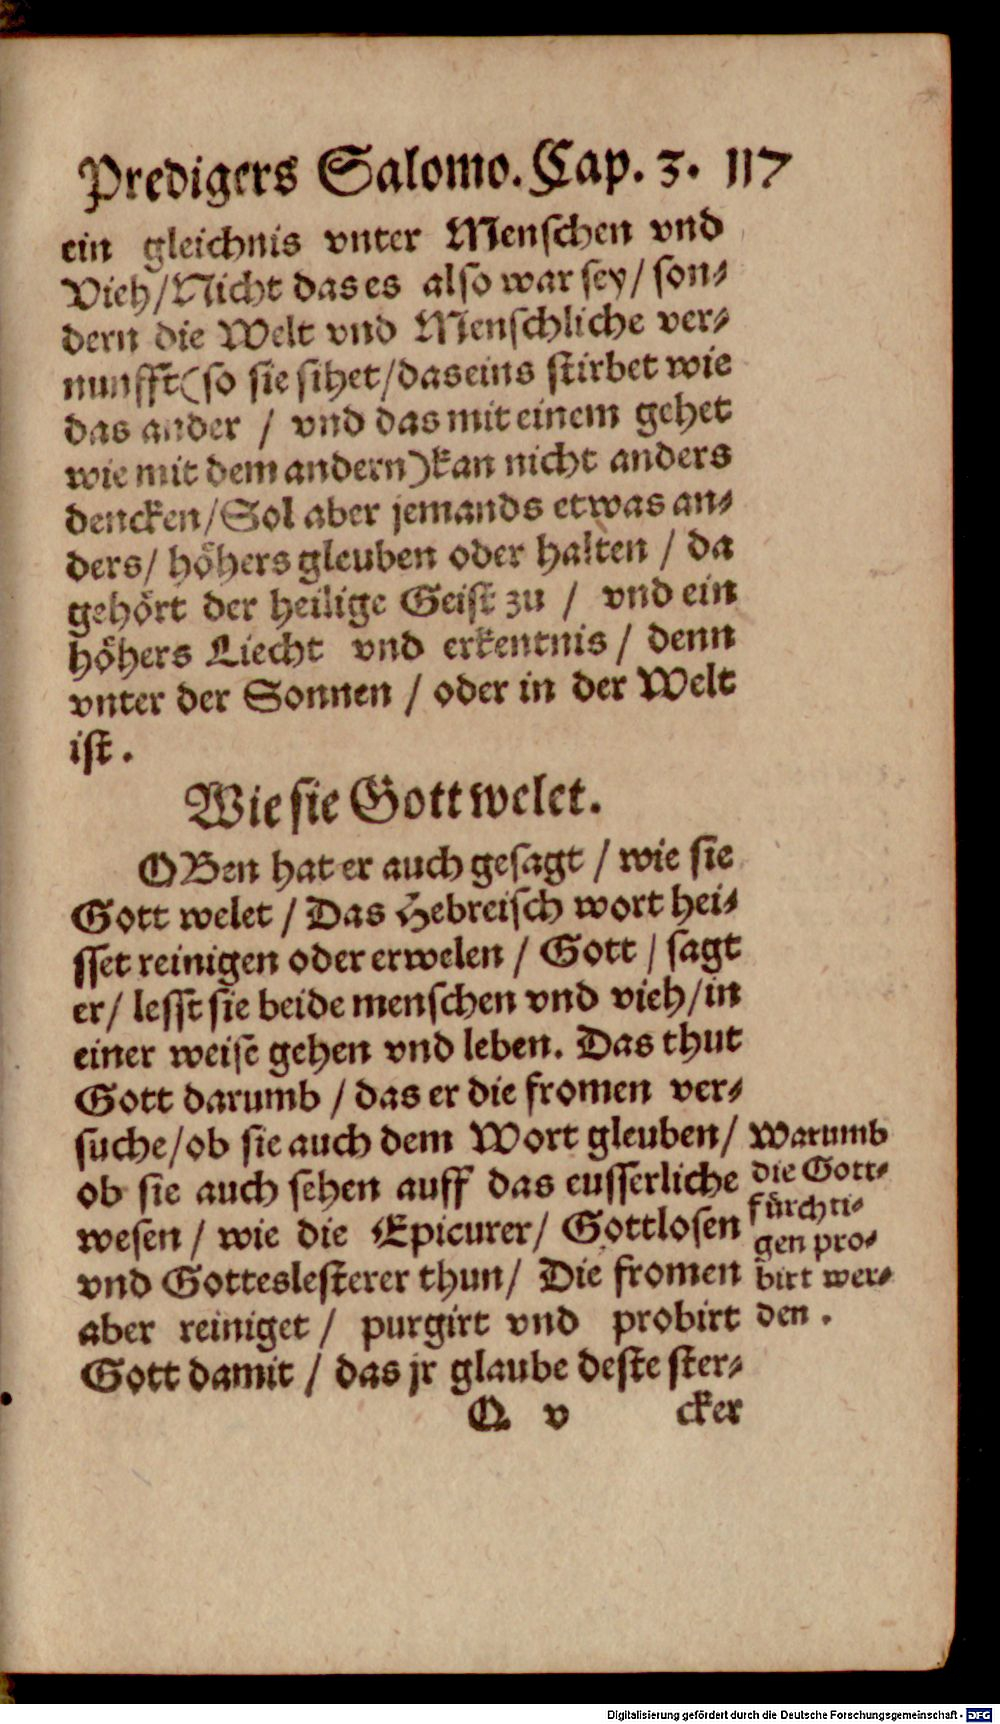 Predigers Salomo. Cap. 3. 117
ein gleichnis vnter Menschen vnd
Vieh/Nicht das es also war sey/ son-
dern die Welt vnd Menschliche ver-
nunfft(so sie sihet/das eins stirbet wie
das ander / vnd das mit einem gehet
wie mit dem andern)kan nicht anders
dencken/Sol aber jemands etwas an-
ders/ höhers gleuben oder halten / da
gehört der heilige Geist zu / vnd ein
höhers Liecht vnd erkentnis / denn
vnter der Sonnen / oder in der Welt
ist.
Wie sie Gott welet.
OBen hat er auch gesagt / wie sie
Gott welet / Das Hebreisch wort hei-
sset reinigen oder erwelen / Gott / sagt
er/ lesst sie beide menschen vnd vieh/in
einer weise gehen vnd leben. Das thut
Gott darumb / das er die fromen ver-
suche/ob sie auch dem Wort gleuben/
ob sie auch sehen auff das eusserliche
wesen / wie die Epicurer/ Gottlosen
vnd Gotteslesterer thun/ Die fromen
aber reiniget / purgirt vnd probirt
Gott damit / das jr glaube deste ster-
Q v cker
Warumb
die Gott-
fürchti-
gen pro-
birt wer-
den.
Digitalisierung gefördert durch die Deutsche Forschungsgemeinschaft - DFG